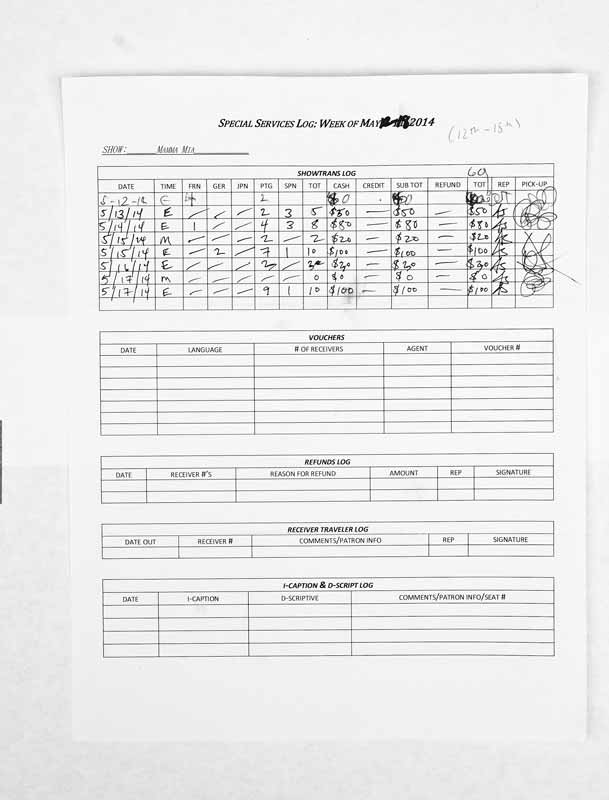 SPECIAL SERVICES LOG: WEEK OF MAY 2014
(12th-18th)
SHOW: MAMMA MIA
SHOWTRANS LOG
DATE TIME FRN GER JPN PTG SPN TOT CASH CREDIT SUB TOT REFUND TOT REP PICK-UP
5-12-14 E 2
5/13/14 E — — — 2 3 5 $50 — $50 — $50
5/14/14 E 1 — — 4 3 8 $80 — $80 — $80
5/15/14 M — — — 2 — 2 $20 — $20 — $20
5/15/14 E — 2 — 7 1 10 $100 — $100 — $100
5/16/14 E — — — 3 — $30 — $30 — $30
5/17/14 M — — — — — 0 $0 — $0 — $0
5/17/14 E — — — 9 1 10 $100 — $100 — $100
VOUCHERS
DATE LANGUAGE # OF RECEIVERS AGENT VOUCHER #
REFUNDS LOG
DATE RECEIVER #'S REASON FOR REFUND AMOUNT REP SIGNATURE
RECEIVER TRAVELER LOG
DATE OUT RECEIVER # COMMENTS/PATRON INFO REP SIGNATURE
I-CAPTION & D-SCRIPT LOG
DATE I-CAPTION D-SCRIPTIVE COMMENTS/PATRON INFO/SEAT #